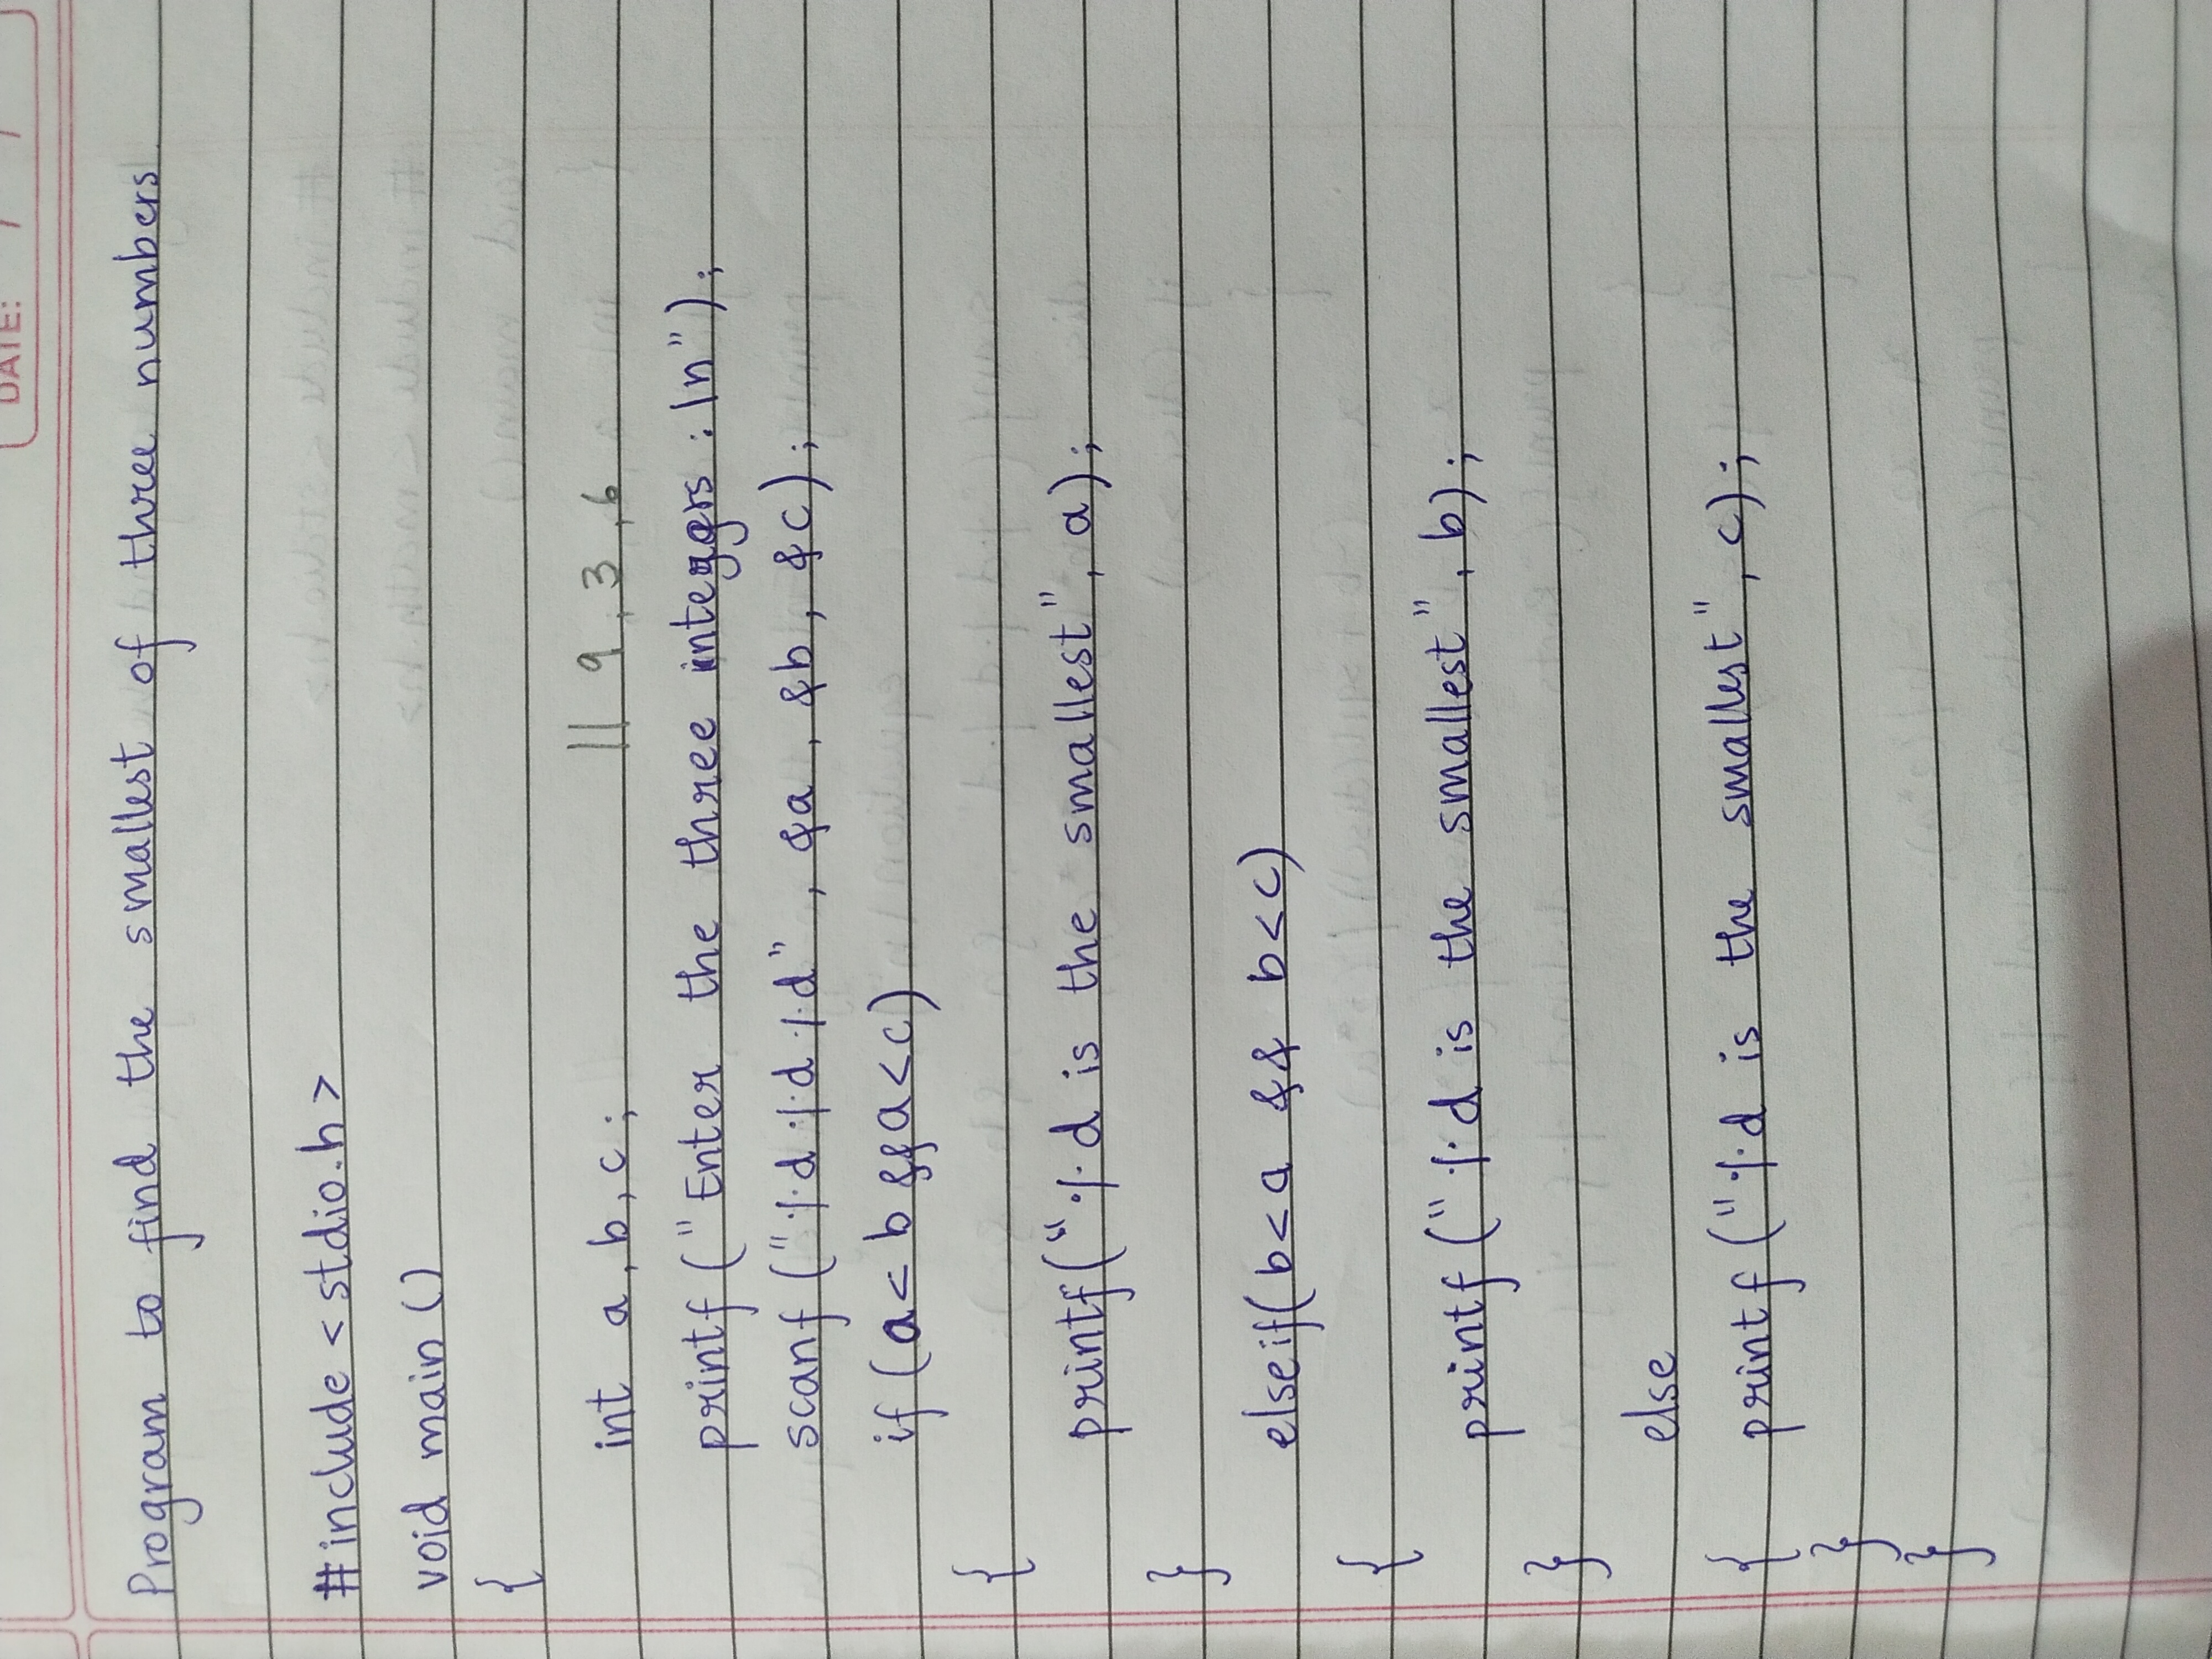 DATE: / /
Program to find the smallest of three numbers
#include <stdio.h>
void main ()
{
int a, b, c; || 9, 3, 6
printf ("Enter the three integers : \n");
scanf ("%d %d %d", &a, &b, &c);
if (a < b && a < c)
{
printf("%d is the smallest", a);
}
else if( b < a && b < c)
{
printf ("%d is the smallest", b);
}
else
{ printf ("%d is the smallest", c);
}
}